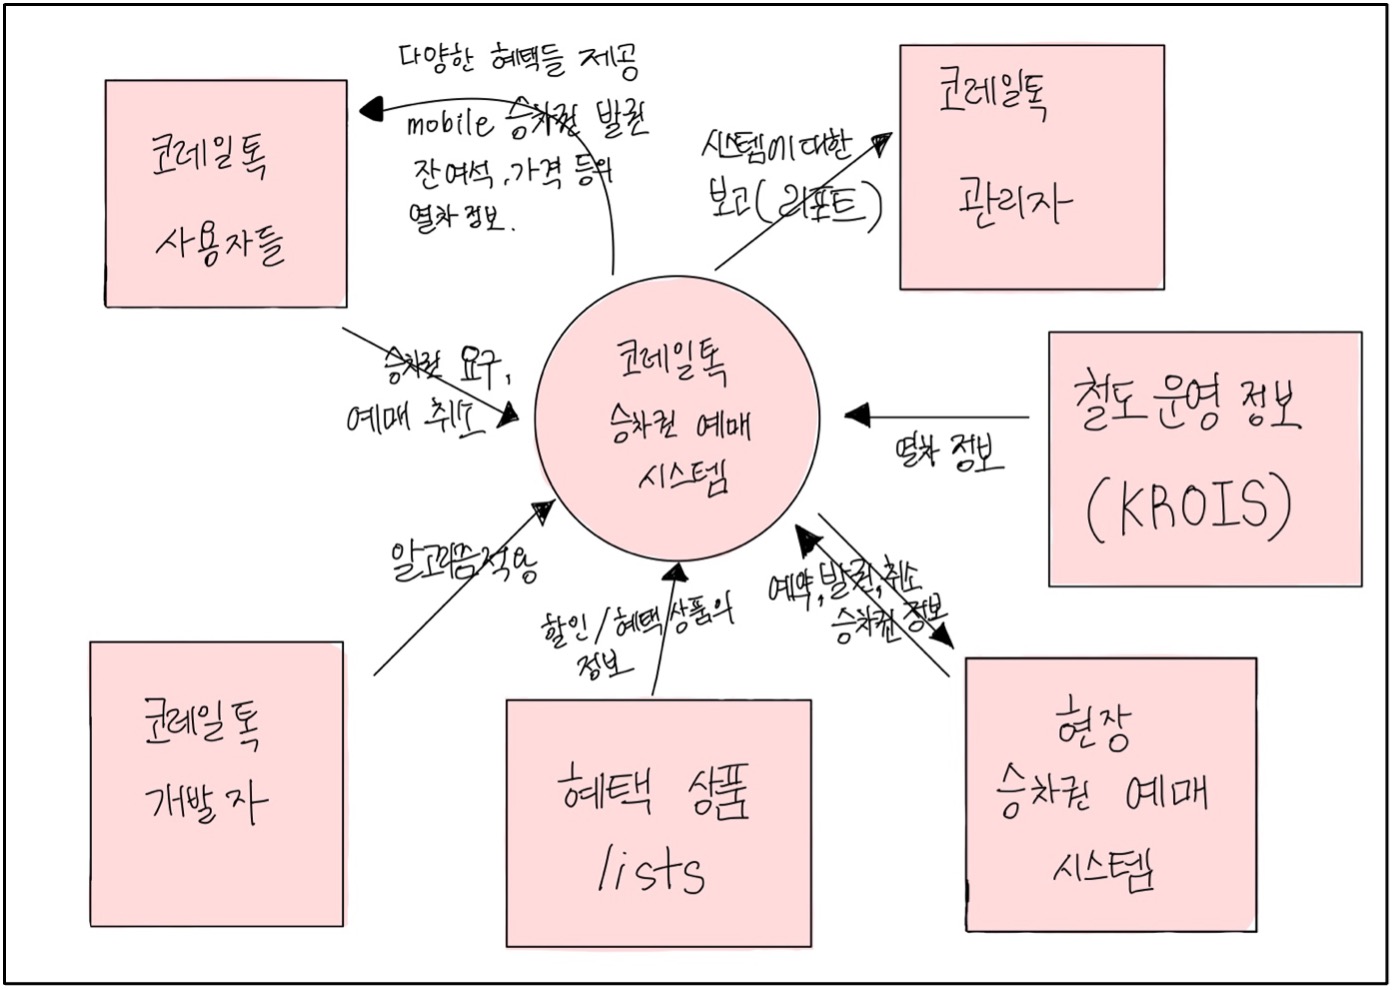 다양한 혜택들 제공
mobile 승차권 발권
잔여석, 가격 등의
열차 정보.
코레일톡
사용자들
시스템에 대한
보고(리포트)
코레일톡
관리자
승차권 요구,
예매 취소
코레일톡
승차권 예매
시스템
열차 정보
철도 운영 정보
(KROIS)
알고리즘 적용
할인/혜택 상품의
정보
예약, 발권, 취소
승차권 정보
코레일톡
개발자
혜택 상품
lists
현장
승차권 예매
시스템